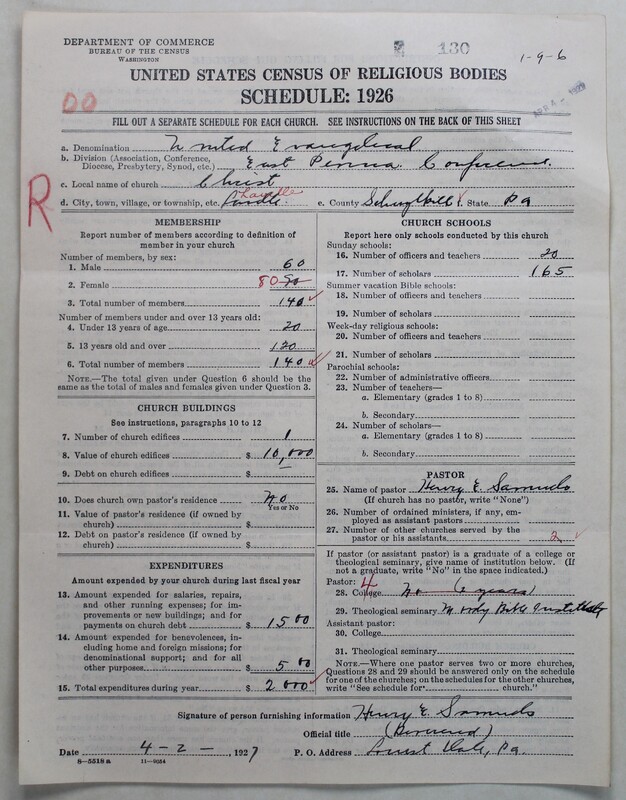 DEPARTMENT OF COMMERCE
BUREAU OF THE CENSUS
WASHINGTON
130
1-9-6
UNITED STATES CENSUS OF RELIGIOUS BODIES
SCHEDULE: 1926
FILL OUT A SEPARATE SCHEDULE FOR EACH CHURCH. SEE INSTRUCTIONS ON THE BACK OF THIS SHEET
a. Denomination United Evangelical
b. Division (Association, Conference, Diocese, Presbytery, Synod, etc.) East Penna. Conference.
c. Local name of church Christ
R
d. City, town, village, or township, etc. Lavelle e. County Schuylkill f. State Pa
MEMBERSHIP
Report number of members according to definition of member in your church
Number of members, by sex:
1. Male 60
2. Female 80
3. Total number of members 140
Number of members under and over 13 years old:
4. Under 13 years of age 20
5. 13 years old and over 120
6. Total number of members 140
NOTE.—The total given under Question 6 should be the same as the total of males and females given under Question 3.
CHURCH BUILDINGS
See instructions, paragraphs 10 to 12
7. Number of church edifices 1
8. Value of church edifices $ 10,000
9. Debt on church edifices $
10. Does church own pastor's residence No
Yes or No
11. Value of pastor's residence (if owned by church) $
12. Debt on pastor's residence (if owned by church) $
EXPENDITURES
Amount expended by your church during last fiscal year
13. Amount expended for salaries, repairs, and other running expenses; for improvements or new buildings; and for payments on church debt $ 1500
14. Amount expended for benevolences, including home and foreign missions; for denominational support; and for all other purposes $ 500
15. Total expenditures during year $ 2000
CHURCH SCHOOLS
Report here only schools conducted by this church
Sunday schools:
16. Number of officers and teachers 20
17. Number of scholars 165
Summer vacation Bible schools:
18. Number of officers and teachers
19. Number of scholars
Week-day religious schools:
20. Number of officers and teachers
21. Number of scholars
Parochial schools:
22. Number of administrative officers
23. Number of teachers—
a. Elementary (grades 1 to 8)
b. Secondary
24. Number of scholars—
a. Elementary (grades 1 to 8)
b. Secondary
PASTOR
25. Name of pastor Henry E. Samuels
(If church has no pastor, write "None")
26. Number of ordained ministers, if any, employed as assistant pastors
27. Number of other churches served by the pastor or his assistants 2
If pastor (or assistant pastor) is a graduate of a college or theological seminary, give name of institution below. (If not a graduate, write "No" in the space indicated.)
Pastor:
28. College No
29. Theological seminary Moody Bible Institute
Assistant pastor:
30. College
31. Theological seminary
NOTE.—Where one pastor serves two or more churches, Questions 28 and 29 should be answered only on the schedule for one of the churches; on the schedules for the other churches, write "See schedule for church."
Signature of person furnishing information Henry E. Samuels
Official title (Reverend)
Date 4-2-, 1927 P. O. Address Dale, Pa.
8—5518 a 11—9054